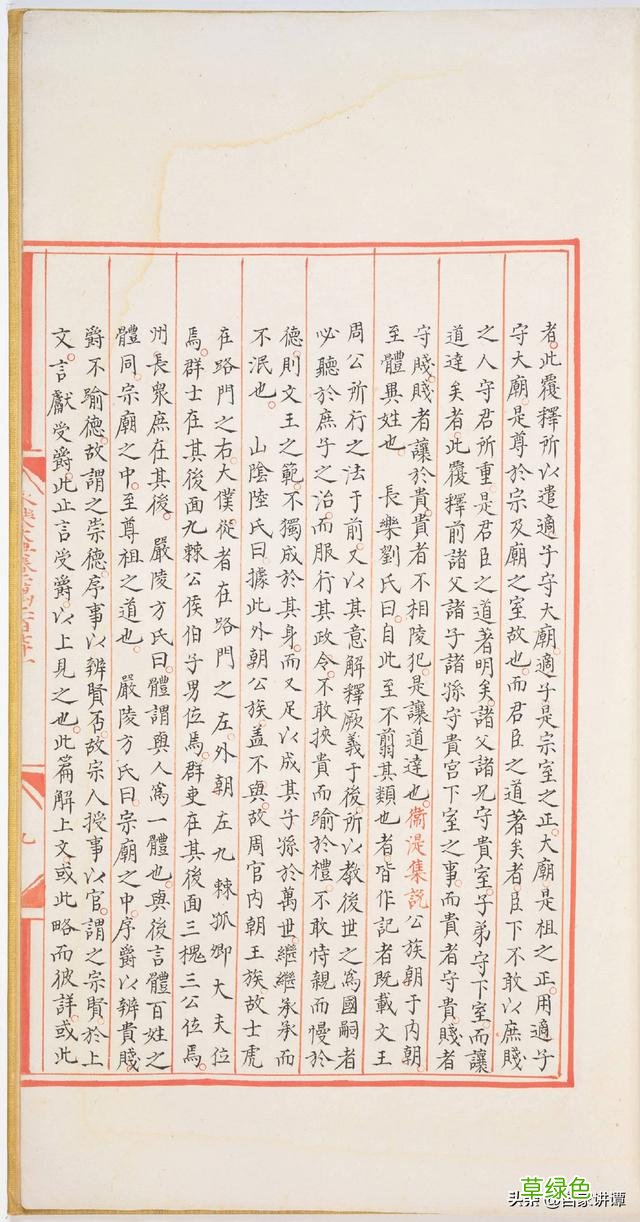 者。此覆釋所以遣適子守大廟。適子是宗室之正。大廟是祖之正。用適子
守大廟。是尊於宗及廟之室故也。而君臣之道著矣者。臣下不敢以庶賤
之人守君所重。是君臣之道著明矣。諸父諸兄守貴室。子弟守下室。而讓
道達矣者。此覆釋前諸父諸子諸孫守貴宮下室之事。而貴者守貴。賤者
守賤。賤者讓於貴。貴者不相陵犯。是讓道達也。衞湜集說公族朝于內朝
至體異姓也。 長樂劉氏曰。自此至不翦其類也者。皆作記者既載文王
周公所行之法于前。又以其意解釋厥義于後。所以教後世之爲國嗣者
必聽於庶子之治。而服行其政令。不敢挾貴而踰於禮。不敢恃親而慢於
德。則文王之範。不獨成於其身。而又足以成其子孫於萬世。繼繼承承而
不泯也。 山陰陸氏曰。據此外朝公族。盖不與。故周官內朝王族。故士虎
在路門之右。大僕從者在路門之左。外朝左九棘。孤卿大夫位
焉。群士在其後。面九棘。公侯伯子男位焉。群吏在其後。面三槐。三公位焉。
州長衆庶在其後。 嚴陵方氏曰。體謂與人爲一體也。與後言體百姓之
體同。宗廟之中。至尊祖之道也。 嚴陵方氏曰。宗廟之中。序爵以辨貴賤。
爵不踰德。故謂之崇德。序事以辨賢否。故宗人授事以官。謂之宗賢。於上
文。言獻受爵。此止言受爵。以上見之也。此篇解上文。或此略而彼詳。或此
九
草绿色
头条 @百家讲谭